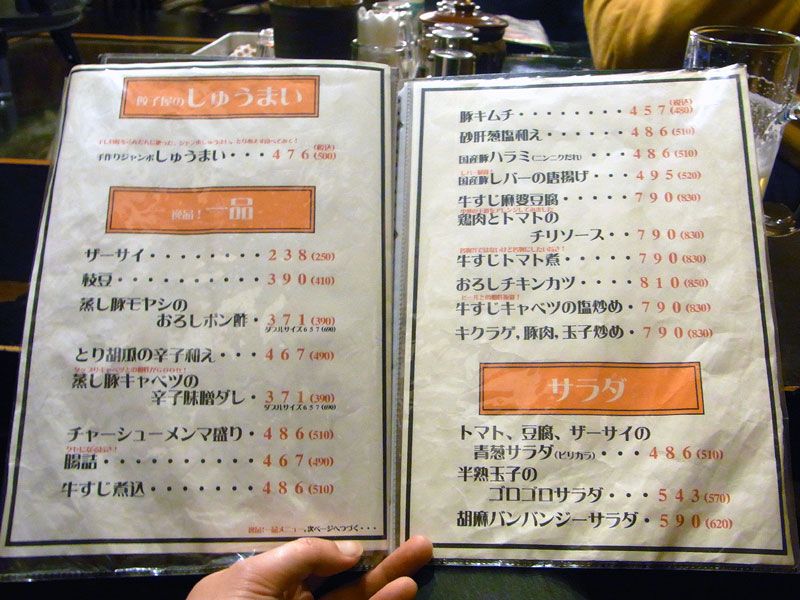 餃子屋のしゅうまい
(税込)
手作りジャンボしゅうまい・・・476(500)
逸品！一品
ザーサイ・・・・・・・・238(250)
枝豆・・・・・・・・・・390(410)
蒸し豚モヤシの
おろしポン酢・371(390)
ダブルサイズ657(690)
とり胡瓜の辛子和え・・・467(490)
蒸し豚キャベツの
辛子味噌ダレ・371(390)
ダブルサイズ657(690)
チャーシューメンマ盛り・486(510)
腸詰・・・・・・・・・・467(490)
牛すじ煮込・・・・・・・486(510)
逸品！一品メニュー、次ページへつづく・・・
(税込)
豚キムチ・・・・・・・・457(480)
砂肝葱塩和え・・・・・・486(510)
国産豚ハラミ(ニンニクだれ)・・・486(510)
国産豚レバーの唐揚げ・・・495(520)
牛すじ麻婆豆腐・・・・・790(830)
鶏肉とトマトの
チリソース・・790(830)
牛すじトマト煮・・・・・790(830)
おろしチキンカツ・・・・810(850)
牛すじキャベツの塩炒め・790(830)
キクラゲ,豚肉,玉子炒め・790(830)
サラダ
トマト、豆腐、ザーサイの
青葱サラダ(ピリカラ)・・・486(510)
半熟玉子の
ゴロゴロサラダ・・・543(570)
胡麻バンバンジーサラダ・590(620)